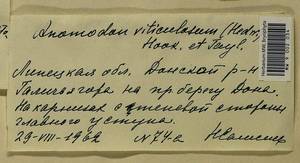 Anomodon viticulosum (Hedw.)
Hook. et Tayl.
Липецкая обл. Донской р-н
Галичья гора на пр. берегу Дона.
На карнизах с теневой стороны
главного уступа.
29-VIII-1962 №74а